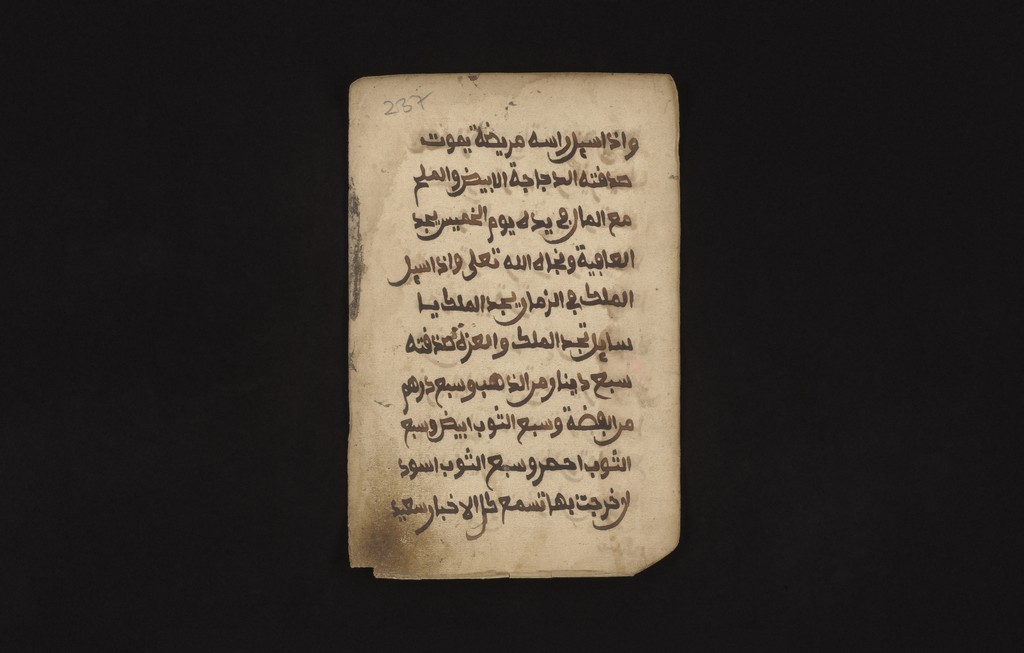 237
واذا سيل راسه مريضة يموت
صدفته الدجاجة الابيض والملح
مع المال في يده يوم الخميس يجد
العافية ونجاه الله تعلى واذا سيل
الملك في الزمان يجد الملك يا
سايل تجد الملك والعزة صدفته
سبع دينار من الذهب وسبع درهم
من الفضة وسبع الثوب ابيض وسبع
الثوب احمر وسبع الثوب اسود
ان خرجت بها تسمع كل الاخبار سعيد